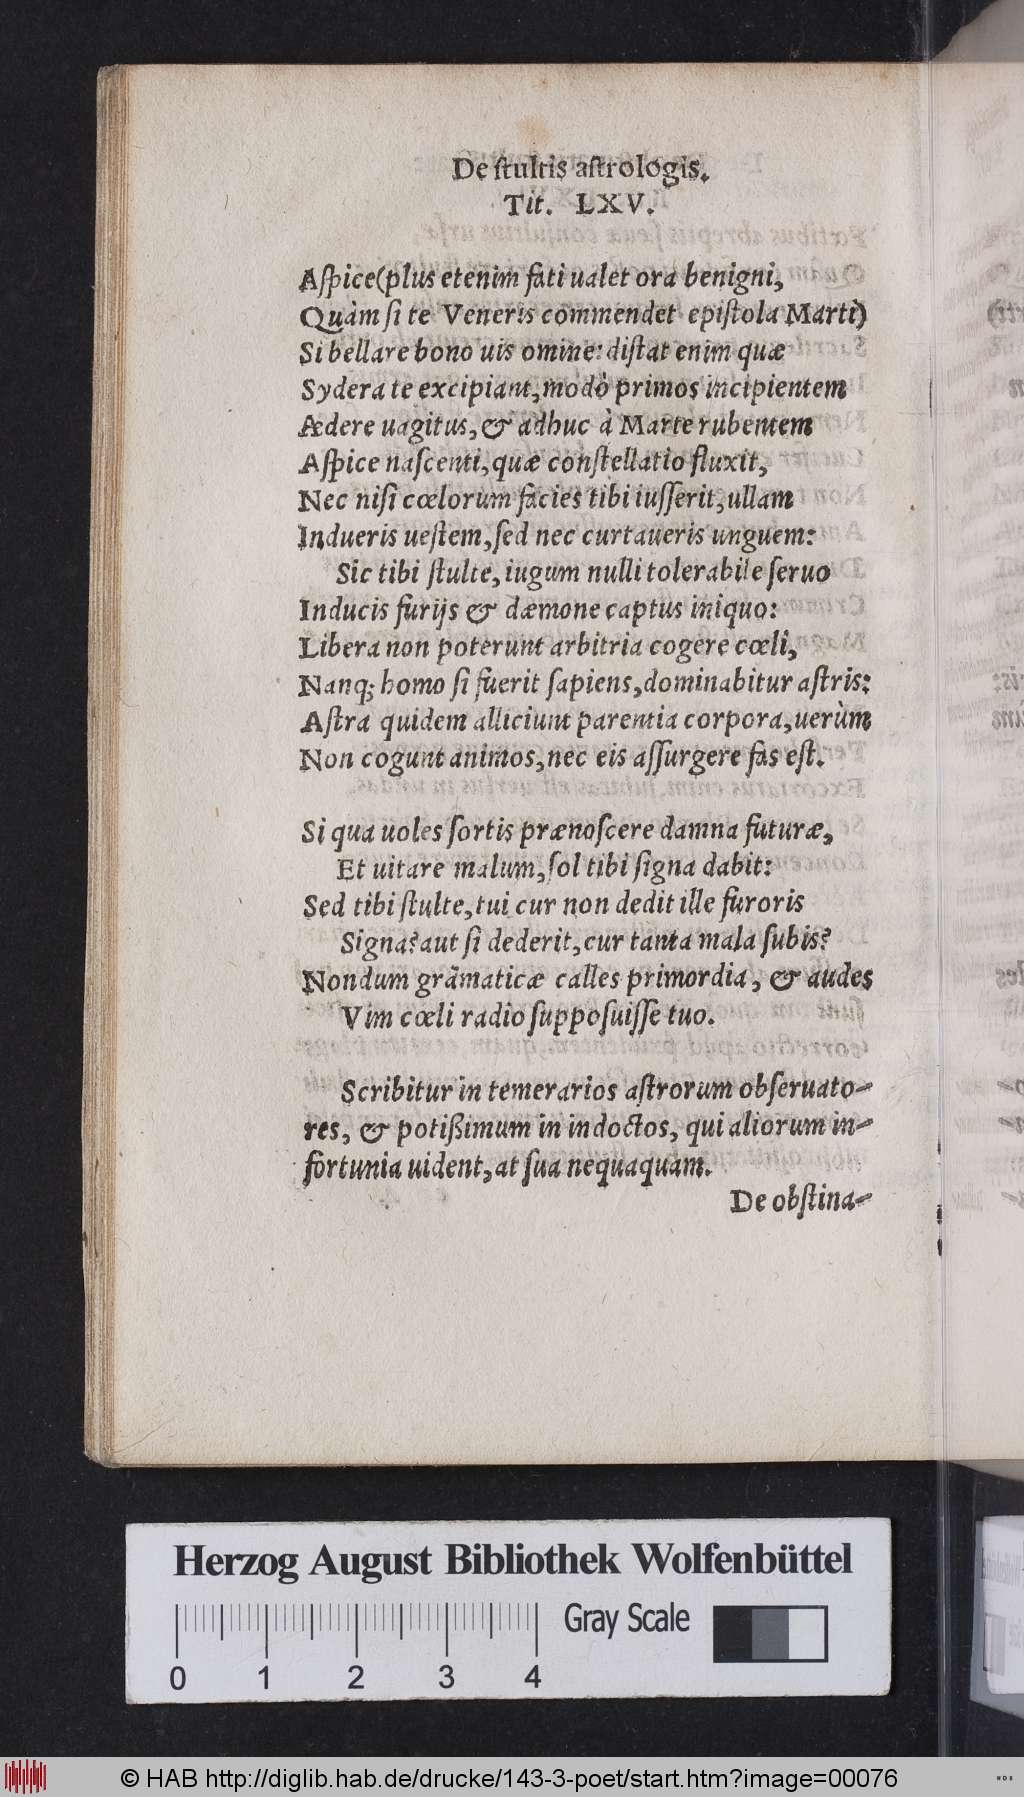 De stultis astrologis.
Tit. LXV.
Aspice (plus etenim fati ualet ora benigni,
Quàm si te Veneris commendet epistola Marti)
Si bellare bono uis omine: distat enim quæ
Sydera te excipiant, modò primos incipientem
Ædere uagitus, & adhuc à Marte rubentem
Aspice nascenti, quæ constellatio fluxit,
Nec nisi cœlorum facies tibi iusserit, ullam
Indueris uestem, sed nec curtaueris unguem:
Sic tibi stulte, iugum nulli tolerabile seruo
Inducis furijs & dæmone captus iniquo:
Libera non poterunt arbitria cogere cœli,
Nanq; homo si fuerit sapiens, dominabitur astris:
Astra quidem alliciunt parentia corpora, uerùm
Non cogunt animos, nec eis assurgere fas est.
Si qua uoles sortis prænoscere damna futuræ,
Et uitare malum, sol tibi signa dabit:
Sed tibi stulte, tui cur non dedit ille furoris
Signa? aut si dederit, cur tanta mala subis?
Nondum grãmaticæ calles primordia, & audes
Vim cœli radio supposuisse tuo.
Scribitur in temerarios astrorum obseruato-
res, & potißimum in indoctos, qui aliorum in-
fortunia uident, at sua nequaquam.
De obstina-
Herzog August Bibliothek Wolfenbüttel
Gray Scale
0 1 2 3 4
© HAB http://diglib.hab.de/drucke/143-3-poet/start.htm?image=00076